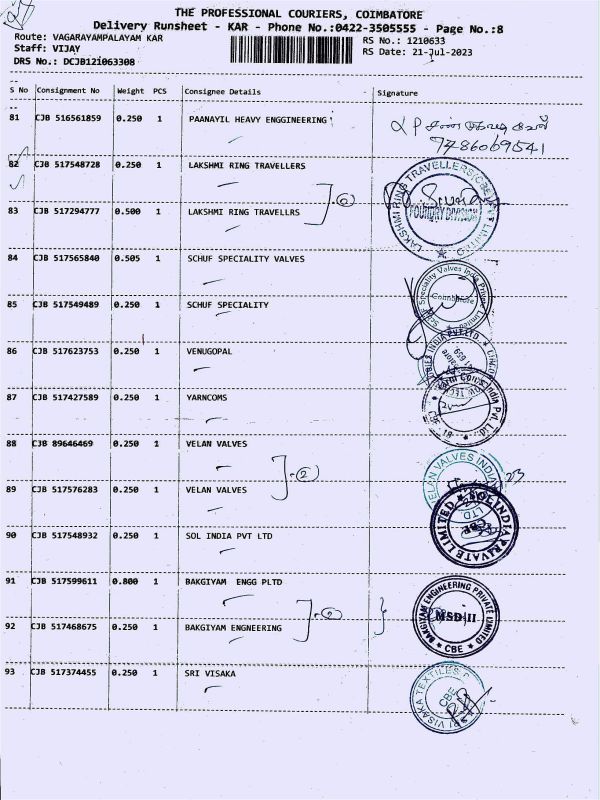 THE PROFESSIONAL COURIERS, COIMBATORE
Delivery Runsheet - KAR - Phone No.:0422-3505555 - Page No.:8
Route: VAGARAYAMPALAYAM KAR
RS No.: 1210633
Staff: VIJAY
RS Date: 21-Jul-2023
DRS No.: DCJB121063308
S No Consignment No Weight PCS Consignee Details Signature
81 CJB 516561859 0.250 1 PAANAYIL HEAVY ENGGINEERING
9786069541
82 CJB 517548728 0.250 1 LAKSHMI RING TRAVELLERS
LAKSHMI RING TRAVELLERS(CBE) PVT LIMITED
FOUNDRY DIVISION
2
83 CJB 517294777 0.500 1 LAKSHMI RING TRAVELLRS
84 CJB 517565840 0.505 1 SCHUF SPECIALITY VALVES
Schuf Speciality Valves India Private Limited
Coimbatore
85 CJB 517549489 0.250 1 SCHUF SPECIALITY
86 CJB 517623753 0.250 1 VENUGOPAL
INDIA PVT LTD
87 CJB 517427589 0.250 1 YARNCOMS
Yarni Coms India Pvt. Ltd.
CBE
88 CJB 89646469 0.250 1 VELAN VALVES
VELAN VALVES INDIA
LTD
2
89 CJB 517576283 0.250 1 VELAN VALVES
90 CJB 517548932 0.250 1 SOL INDIA PVT LTD
SOL INDIA PRIVATE LIMITED
CBE
91 CJB 517599611 0.800 1 BAKGIYAM ENGG PLTD
BAKGIYAM ENGINEERING PRIVATE LIMITED
MSD II
CBE
2
92 CJB 517468675 0.250 1 BAKGIYAM ENGNEERING
93 CJB 517374455 0.250 1 SRI VISAKA
SRI VISAKA TEXTILES
CBE